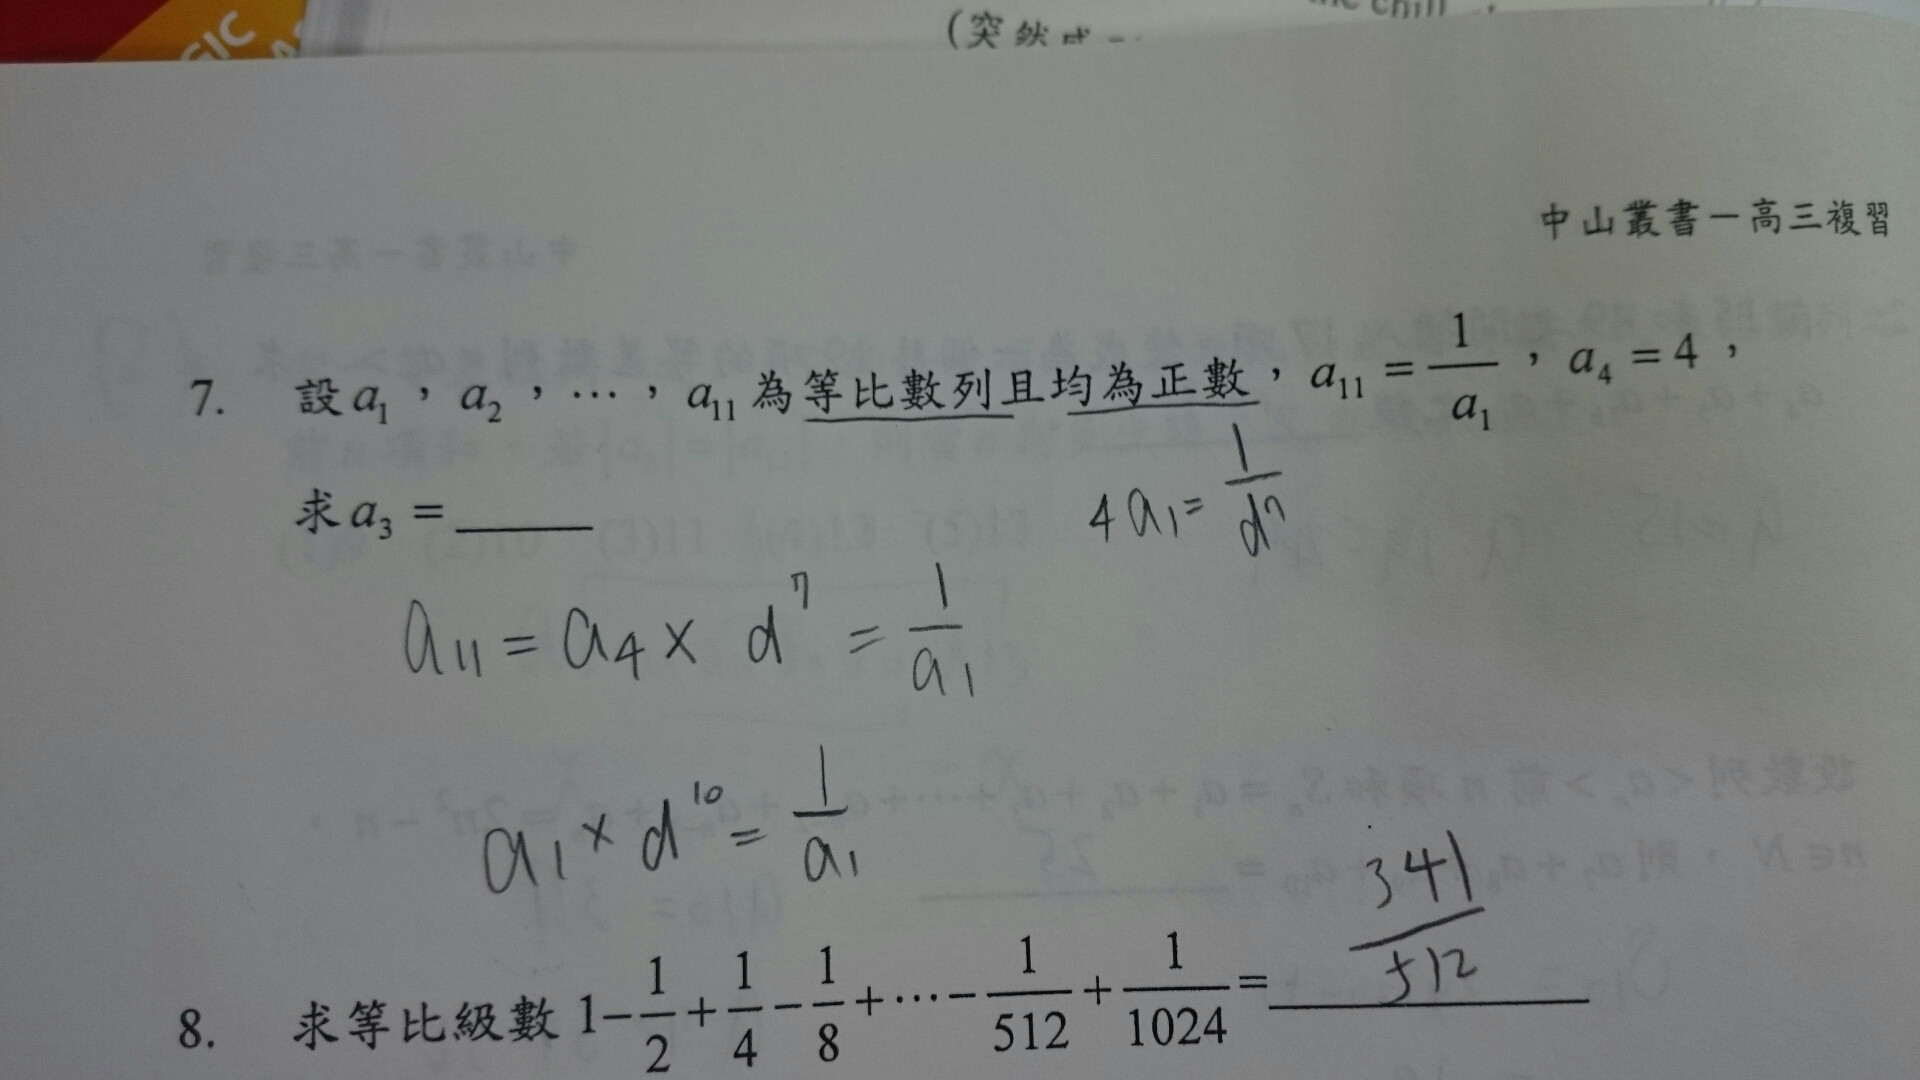 (突然
中山叢書－高三複習
7. 設a₁，a₂，…，a₁₁為等比數列且均為正數，a₁₁ = 1/a₁，a₄ = 4，
求a₃ = ______
4a₁ = 1/d⁷
a₁₁ = a₄ × d⁷ = 1/a₁
a₁ × d¹⁰ = 1/a₁
341/512
8. 求等比級數 1 − 1/2 + 1/4 − 1/8 + ⋯ − 1/512 + 1/1024 = ______